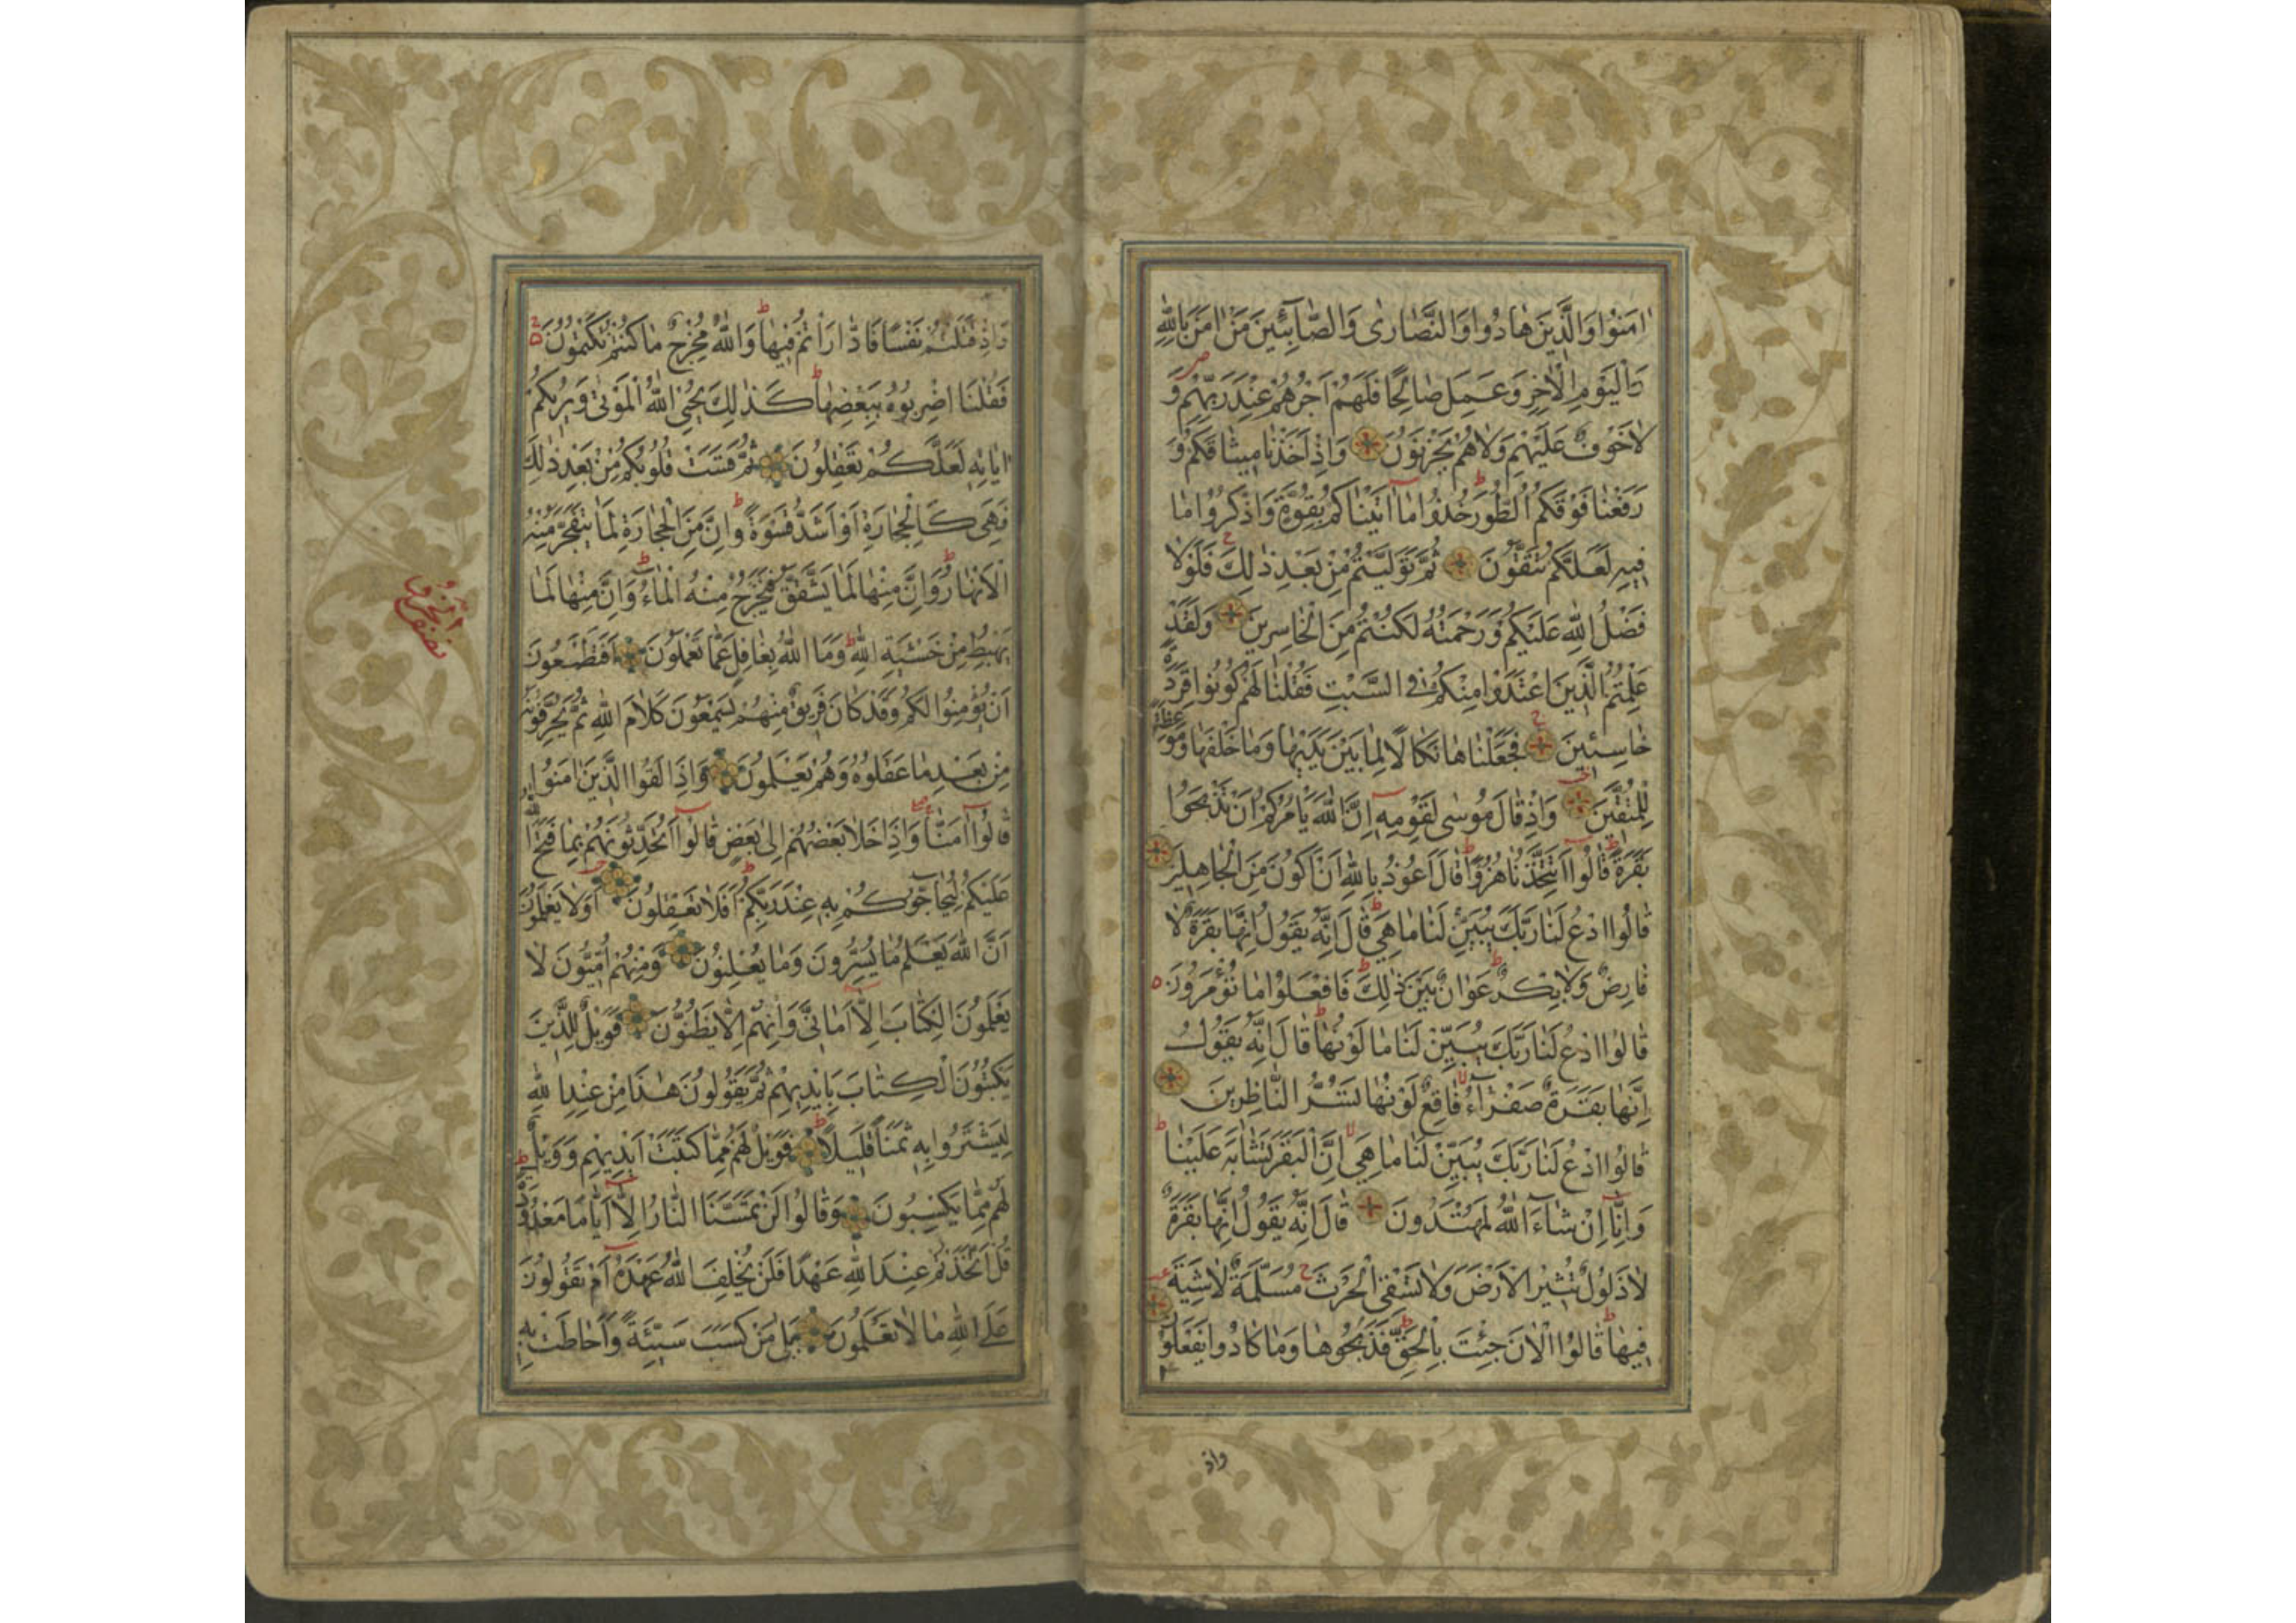 اٰمَنُوا وَالَّذِينَ هَادُوا وَالنَّصَارٰى وَالصَّابِئِينَ مَنْ اٰمَنَ بِاللّٰهِ
وَالْيَوْمِ الْاٰخِرِ وَعَمِلَ صَالِحًا فَلَهُمْ اَجْرُهُمْ عِنْدَ رَبِّهِمْ وَ
لَاخَوْفٌ عَلَيْهِمْ وَلَاهُمْ يَحْزَنُونَ وَاِذْ اَخَذْنَا مِيثَاقَكُمْ وَ
رَفَعْنَا فَوْقَكُمُ الطُّورَ خُذُوا مَا اٰتَيْنَاكُمْ بِقُوَّةٍ وَاذْكُرُوا مَا
فِيهِ لَعَلَّكُمْ تَتَّقُونَ ثُمَّ تَوَلَّيْتُمْ مِنْ بَعْدِ ذٰلِكَ فَلَوْلَا
فَضْلُ اللّٰهِ عَلَيْكُمْ وَرَحْمَتُهُ لَكُنْتُمْ مِنَ الْخَاسِرِينَ وَلَقَدْ
عَلِمْتُمُ الَّذِينَ اعْتَدَوْا مِنْكُمْ فِي السَّبْتِ فَقُلْنَا لَهُمْ كُونُوا قِرَدَةً
خَاسِئِينَ فَجَعَلْنَاهَا نَكَالًا لِمَا بَيْنَ يَدَيْهَا وَمَا خَلْفَهَا وَمَوْعِظَةً
لِلْمُتَّقِينَ وَاِذْ قَالَ مُوسٰى لِقَوْمِهِ اِنَّ اللّٰهَ يَاْمُرُكُمْ اَنْ تَذْبَحُوا
بَقَرَةً قَالُوا اَتَتَّخِذُنَا هُزُوًا قَالَ اَعُوذُ بِاللّٰهِ اَنْ اَكُونَ مِنَ الْجَاهِلِينَ
قَالُوا ادْعُ لَنَا رَبَّكَ يُبَيِّنْ لَنَا مَا هِيَ قَالَ اِنَّهُ يَقُولُ اِنَّهَا بَقَرَةٌ لَا
فَارِضٌ وَلَا بِكْرٌ عَوَانٌ بَيْنَ ذٰلِكَ فَافْعَلُوا مَا تُؤْمَرُونَ
قَالُوا ادْعُ لَنَا رَبَّكَ يُبَيِّنْ لَنَا مَا لَوْنُهَا قَالَ اِنَّهُ يَقُولُ
اِنَّهَا بَقَرَةٌ صَفْرَاءُ فَاقِعٌ لَوْنُهَا تَسُرُّ النَّاظِرِينَ
قَالُوا ادْعُ لَنَا رَبَّكَ يُبَيِّنْ لَنَا مَا هِيَ اِنَّ الْبَقَرَ تَشَابَهَ عَلَيْنَا
وَاِنَّا اِنْ شَاءَ اللّٰهُ لَمُهْتَدُونَ قَالَ اِنَّهُ يَقُولُ اِنَّهَا بَقَرَةٌ
لَا ذَلُولٌ تُثِيرُ الْاَرْضَ وَلَا تَسْقِي الْحَرْثَ مُسَلَّمَةٌ لَا شِيَةَ
فِيهَا قَالُوا الْاٰنَ جِئْتَ بِالْحَقِّ فَذَبَحُوهَا وَمَا كَادُوا يَفْعَلُونَ
واذ
وَاِذْ قَتَلْتُمْ نَفْسًا فَادَّارَاْتُمْ فِيهَا وَاللّٰهُ مُخْرِجٌ مَا كُنْتُمْ تَكْتُمُونَ
فَقُلْنَا اضْرِبُوهُ بِبَعْضِهَا كَذٰلِكَ يُحْيِي اللّٰهُ الْمَوْتٰى وَيُرِيكُمْ
اٰيَاتِهِ لَعَلَّكُمْ تَعْقِلُونَ ثُمَّ قَسَتْ قُلُوبُكُمْ مِنْ بَعْدِ ذٰلِكَ
فَهِيَ كَالْحِجَارَةِ اَوْ اَشَدُّ قَسْوَةً وَاِنَّ مِنَ الْحِجَارَةِ لَمَا يَتَفَجَّرُ مِنْهُ
الْاَنْهَارُ وَاِنَّ مِنْهَا لَمَا يَشَّقَّقُ فَيَخْرُجُ مِنْهُ الْمَاءُ وَاِنَّ مِنْهَا لَمَا
يَهْبِطُ مِنْ خَشْيَةِ اللّٰهِ وَمَا اللّٰهُ بِغَافِلٍ عَمَّا تَعْمَلُونَ اَفَتَطْمَعُونَ
اَنْ يُؤْمِنُوا لَكُمْ وَقَدْ كَانَ فَرِيقٌ مِنْهُمْ يَسْمَعُونَ كَلَامَ اللّٰهِ ثُمَّ يُحَرِّفُونَهُ
مِنْ بَعْدِ مَا عَقَلُوهُ وَهُمْ يَعْلَمُونَ وَاِذَا لَقُوا الَّذِينَ اٰمَنُوا
قَالُوا اٰمَنَّا وَاِذَا خَلَا بَعْضُهُمْ اِلٰى بَعْضٍ قَالُوا اَتُحَدِّثُونَهُمْ بِمَا فَتَحَ اللّٰهُ
عَلَيْكُمْ لِيُحَاجُّوكُمْ بِهِ عِنْدَ رَبِّكُمْ اَفَلَا تَعْقِلُونَ اَوَلَا يَعْلَمُونَ
اَنَّ اللّٰهَ يَعْلَمُ مَا يُسِرُّونَ وَمَا يُعْلِنُونَ وَمِنْهُمْ اُمِّيُّونَ لَا
يَعْلَمُونَ الْكِتَابَ اِلَّا اَمَانِيَّ وَاِنْهُمْ اِلَّا يَظُنُّونَ فَوَيْلٌ لِلَّذِينَ
يَكْتُبُونَ الْكِتَابَ بِاَيْدِيهِمْ ثُمَّ يَقُولُونَ هٰذَا مِنْ عِنْدِ اللّٰهِ
لِيَشْتَرُوا بِهِ ثَمَنًا قَلِيلًا فَوَيْلٌ لَهُمْ مِمَّا كَتَبَتْ اَيْدِيهِمْ وَوَيْلٌ
لَهُمْ مِمَّا يَكْسِبُونَ وَقَالُوا لَنْ تَمَسَّنَا النَّارُ اِلَّا اَيَّامًا مَعْدُودَةً
قُلْ اَتَّخَذْتُمْ عِنْدَ اللّٰهِ عَهْدًا فَلَنْ يُخْلِفَ اللّٰهُ عَهْدَهُ اَمْ تَقُولُونَ
عَلَى اللّٰهِ مَا لَا تَعْلَمُونَ بَلٰى مَنْ كَسَبَ سَيِّئَةً وَاَحَاطَتْ بِهِ